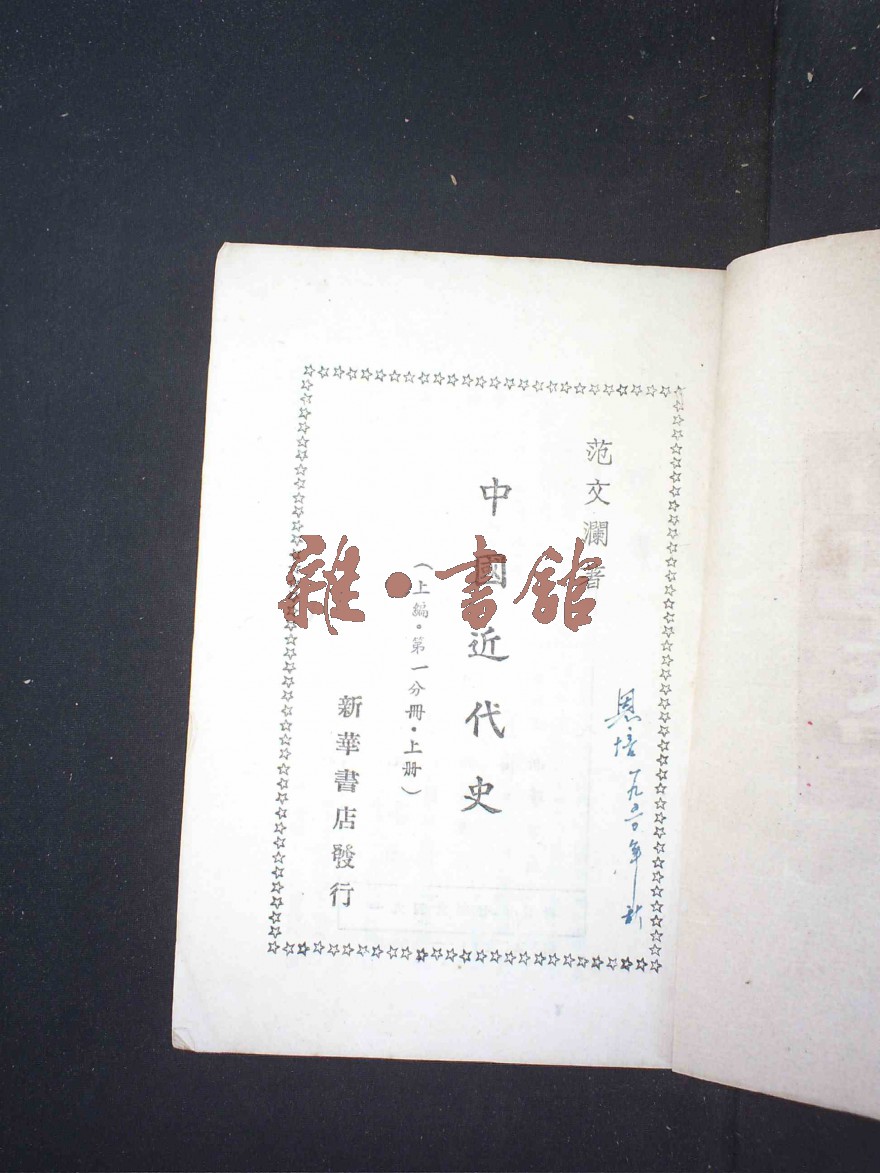 范文瀾著
中國近代史
(上編·第一分冊·上册)
新華書店發行
恩培 一九五〇年
雜·書舘